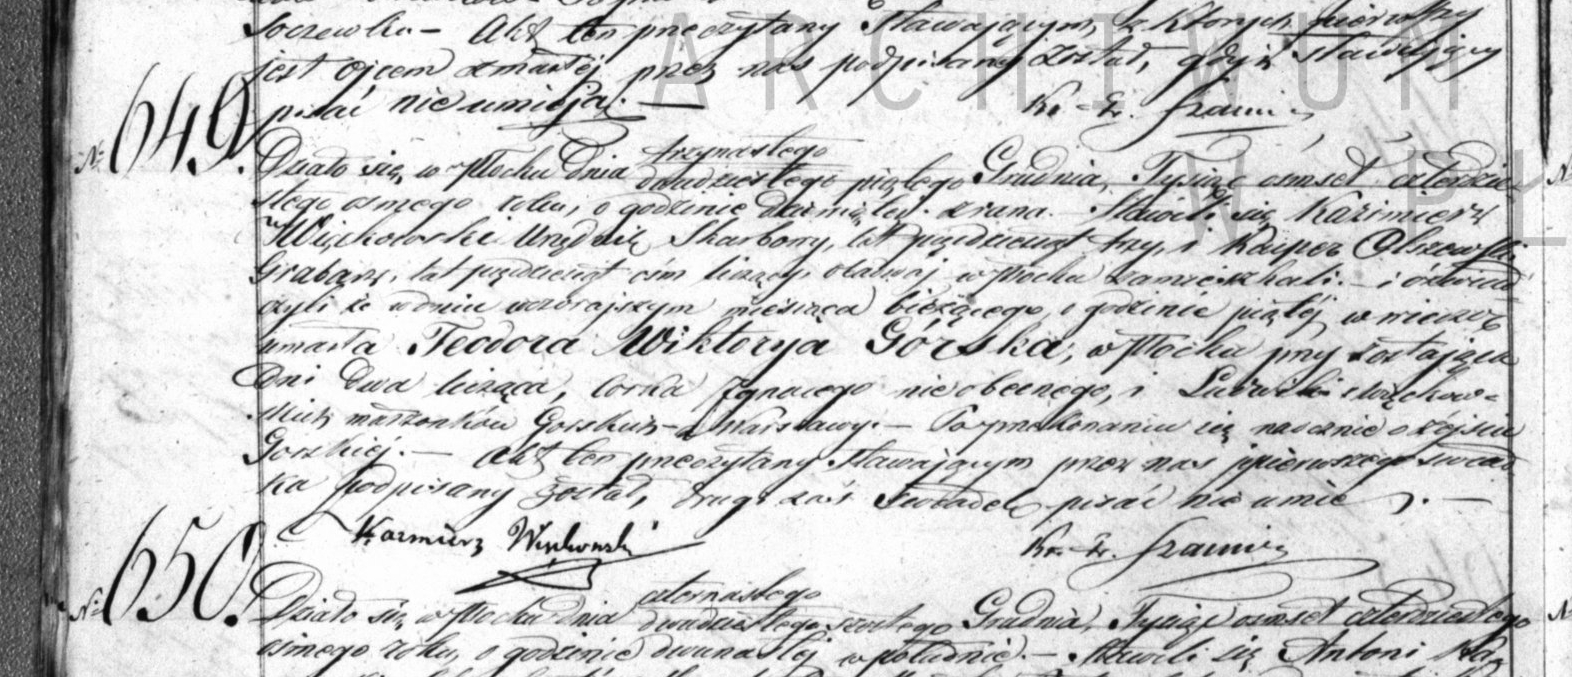 Soczewka – Akt ten przeczytany Stawającym, z których pierwszy
jest ojcem zmarłej przez nas podpisany został, gdyż stawający
pisać nie umieją. —
Kx. Fr.
ARCHIWUM
W PŁ
№ 649.
trzynastego
Działo się w Płocku dnia dwudziestego piątego Grudnia, Tysiąc osmset czterdzie-
stego osmego roku, o godzinie dziewiątej z rana. – Stawili się Kazimierz
Więckowski Urzędnik Skarbowy, lat pięćdziesiąt trzy, i Kacper Olszewski
Grabarz, lat pięćdziesiąt ośm liczący, obadwaj w Płocku zamieszkali. – i oświad-
czyli że w dniu wczorajszym miesiąca bieżącego, o godzinie piątej w wieczór
umarła Teodora Wiktorya Górska, w Płocku przy
Dni dwa licząca, córka Ignacego nieobecnego, i Ludwiki z Więckow-
skich małżonków Gorskich z Warszawy. – Po przekonaniu się naocznie o zejściu
Gorskiej. – Akt ten przeczytany Stawającym przez nas i pierwszego świad-
ka podpisany został, drugi zaś Świadek pisać nie umie. —
Kazmierz Więckowski
Kx. Fr.
№ 650.
czternastego
Działo się w Płocku dnia dwudziestego szóstego Grudnia, Tysiąc osmset czterdziestego
osmego roku, o godzinie dwunastej w południe. – Stawili się Antoni